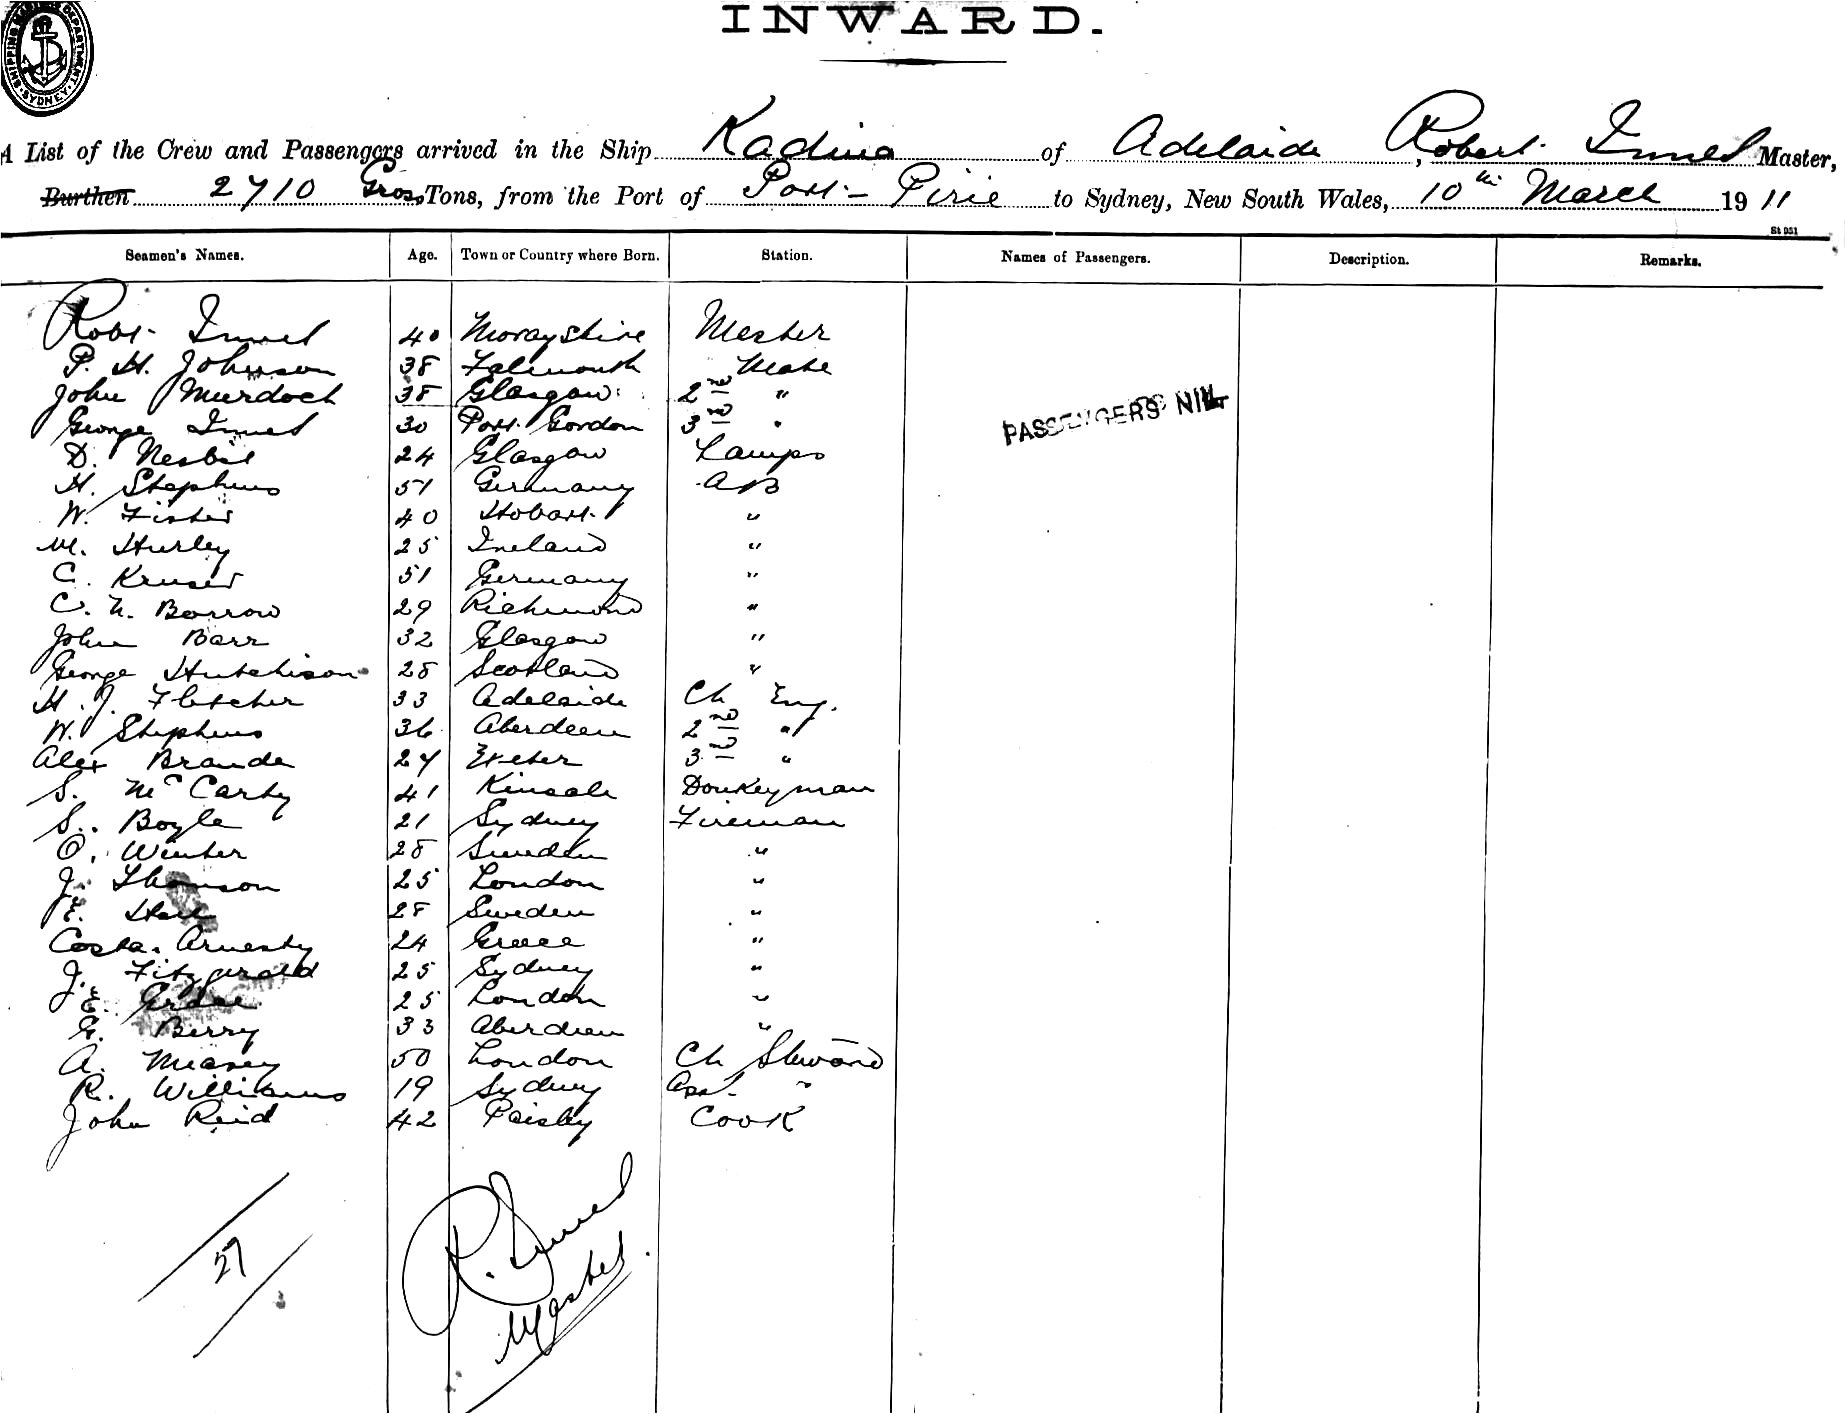 SHIPPING MASTERS DEPARTMENT SYDNEY
INWARD.
A List of the Crew and Passengers arrived in the Ship Kadina of Adelaide, Robert Innes Master,
Burthen 2710 Gross Tons, from the Port of Port Pirie to Sydney, New South Wales, 10th March 1911
St 931
Seamen's Names. Age. Town or Country where Born. Station. Names of Passengers. Description. Remarks.
Robt Innes 40 Morayshire Master
P. H. Johnson 38 Falmouth Mate
John Murdoch 38 Glasgow 2nd "
George Innes 30 Port Gordon 3rd "
D. Nesbit 24 Glasgow Lamps
H. Stephens 51 Germany AB
W. Fisher 40 Hobart "
M. Hurley 25 Ireland "
C. Kruser 51 Germany "
C. N. Borrow 29 Richmond "
John Barr 32 Glasgow "
George Hutchison 28 Scotland "
H. J. Fletcher 33 Adelaide Ch Eng.
W. Stephens 36 Aberdeen 2nd "
Alex Brande 27 Exeter 3rd "
S. McCarty 41 Kinsale Donkeyman
S. Boyle 21 Sydney Fireman
O. Winter 28 Sweden "
J. Thomson 25 London "
E. Hall 28 Sweden "
Costa. Arnesty 24 Greece "
J. Fitzgerald 25 Sydney "
E. 25 London "
G. Berry 33 Aberdeen "
A. Measey 50 London Ch Steward
R. Williams 19 Sydney Asst. "
John Reid 42 Paisley Cook
PASSENGERS NIL
27
R. Innes
Master